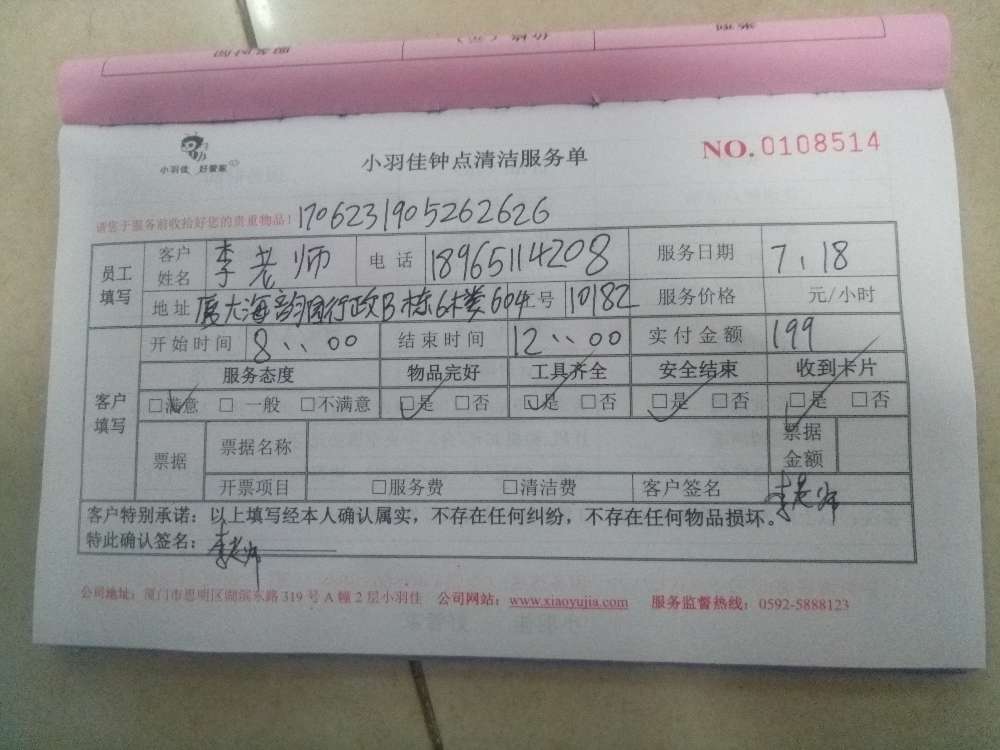 小羽佳 好管家
小羽佳钟点清洁服务单
NO.0108514
请您于服务前收拾好您的贵重物品！ 1706231905262626
员工填写 客户姓名 李老师 电话 18965114208 服务日期 7.18
地址 厦大海韵园行政B栋6楼604 工号 10182 服务价格 元/小时
客户填写 开始时间 8:00 结束时间 12:00 实付金额 199
服务态度 物品完好 工具齐全 安全结束 收到卡片
□满意 □一般 □不满意 □是 □否 □是 □否 □是 □否 □是 □否
票据 票据名称 票据金额
开票项目 □服务费 □清洁费 客户签名 李老师
客户特别承诺：以上填写经本人确认属实，不存在任何纠纷，不存在任何物品损坏。
特此确认签名：李老师
公司地址：厦门市思明区湖滨东路 319 号 A 幢 2 层小羽佳 公司网站：www.xiaoyujia.com 服务监督热线：0592-5888123